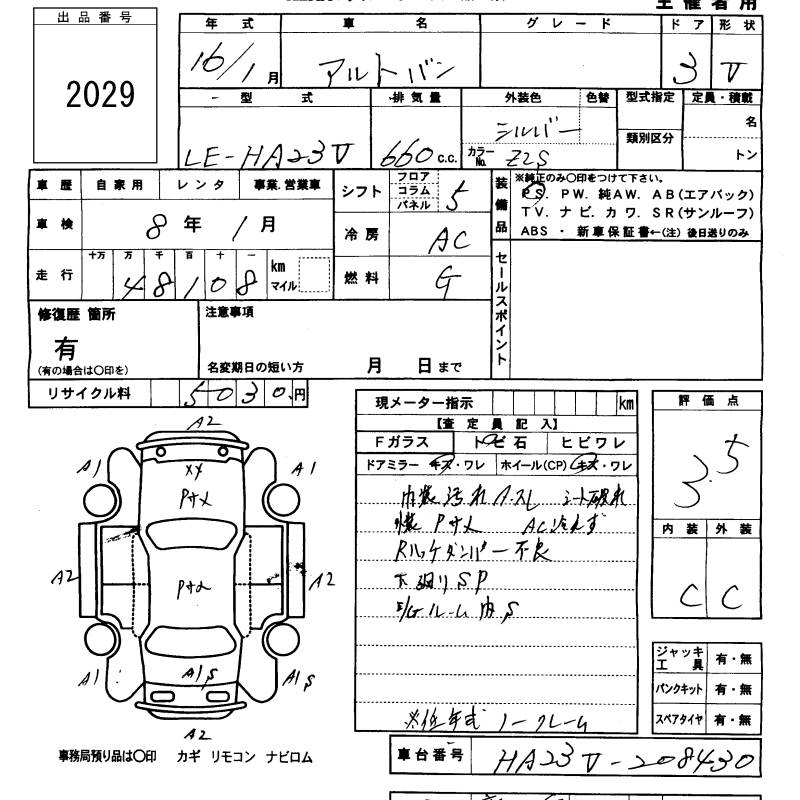 主催者用
出品番号
2029
年式 車名 グレード ドア 形状
16/1月 アルトバン 3 V
型式 排気量 外装色 色替 型式指定 定員・積載
LE-HA23V 660c.c. シルバー 名
カラーNo. Z2S 類別区分 トン
車歴 自家用 レンタ 事業.営業車
車検 8年1月
走行 十万 万 千 百 十 一
48108 km マイル
シフト フロア コラム パネル 5
冷房 AC
燃料 G
装備品 ※純正のみ〇印をつけて下さい。
PS. PW. 純AW. AB(エアバック)
TV. ナビ. カワ. SR(サンルーフ)
ABS ・ 新車保証書←(注) 後日送りのみ
セールスポイント
修復歴 箇所
有
(有の場合は〇印を)
注意事項
名変期日の短い方 月 日まで
リサイクル料 5030.円
現メーター指示 km
【査定員記入】
Fガラス トビ石 ヒビワレ
ドアミラー キズ・ワレ ホイール(CP) キズ・ワレ
内装汚れ ハ・スレ シート破れ
外装 Pサメ AC冷えず
Rハッチダンパー不良
下廻りSP
E/Gルーム内S
※低年式 ノークレーム
評価点
3.5
内装 外装
C C
ジャッキ工具 有・無
パンクキット 有・無
スペアタイヤ 有・無
A2
A1 X4 A1
Pサメ
A2 Pサメ A2
A1 A1S A1S
A2
事務局預り品は〇印 カギ リモコン ナビロム
車台番号 HA23V-208430